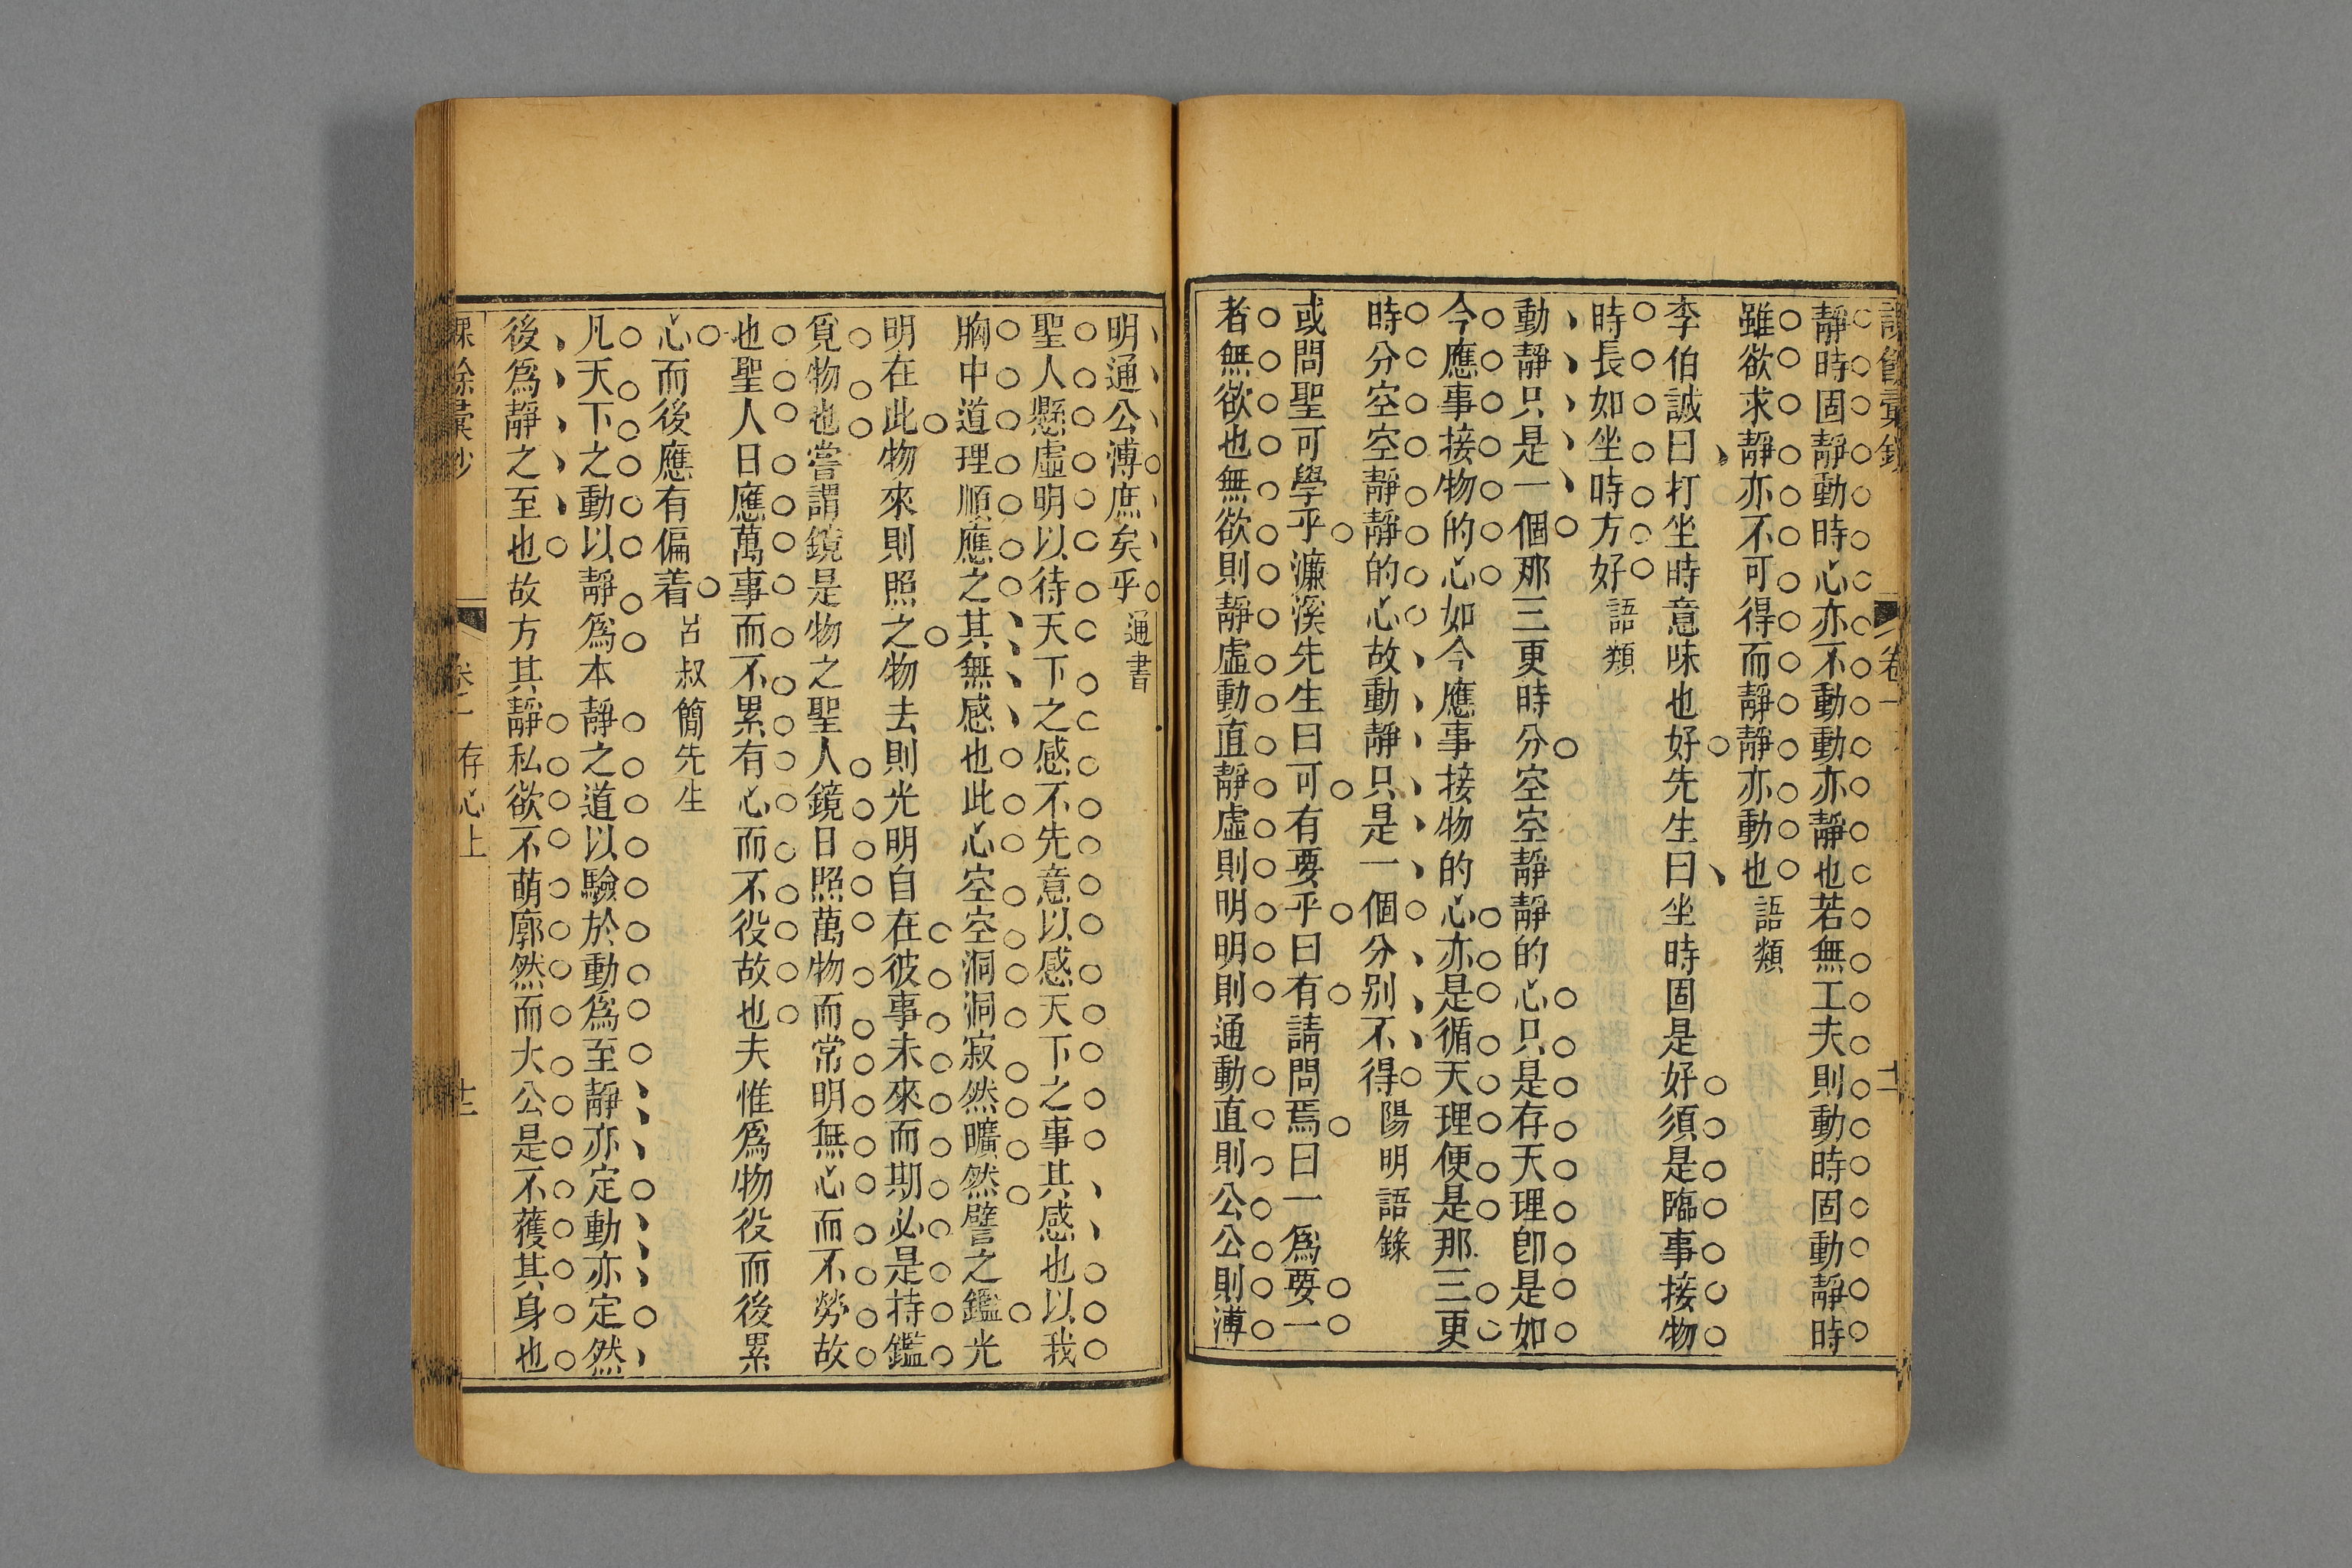 靜時固靜動時心亦不動動亦靜也若無工夫則動時固動靜時
雖欲求靜亦不可得而靜靜亦動也語類
李伯誠曰打坐時意味也好先生曰坐時固是好須是臨事接物
時長如坐時方好語類
動靜只是一個那三更時分空空靜靜的心只是存天理卽是如
今應事接物的心如今應事接物的心亦是循天理便是那三更
時分空空靜靜的心故動靜只是一個分别不得陽明語錄
或問聖可學乎濂溪先生曰可有要乎曰有請問焉曰一爲要一
者無欲也無欲則靜虛動直靜虛則明明則通動直則公公則溥
明通公溥庶矣乎通書
聖人懸虛明以待天下之感不先意以感天下之事其感也以我
胸中道理順應之其無感也此心空空洞洞寂然曠然譬之鑑光
明在此物來則照之物去則光明自在彼事未來而期必是持鑑
覓物也嘗謂鏡是物之聖人鏡日照萬物而常明無心而不勞故
也聖人日應萬事而不累有心而不役故也夫惟爲物役而後累
心而後應有偏着呂叔簡先生
凡天下之動以靜爲本靜之道以驗於動爲至靜亦定動亦定然
後爲靜之至也故方其靜私欲不萌廓然而大公是不獲其身也
存心上